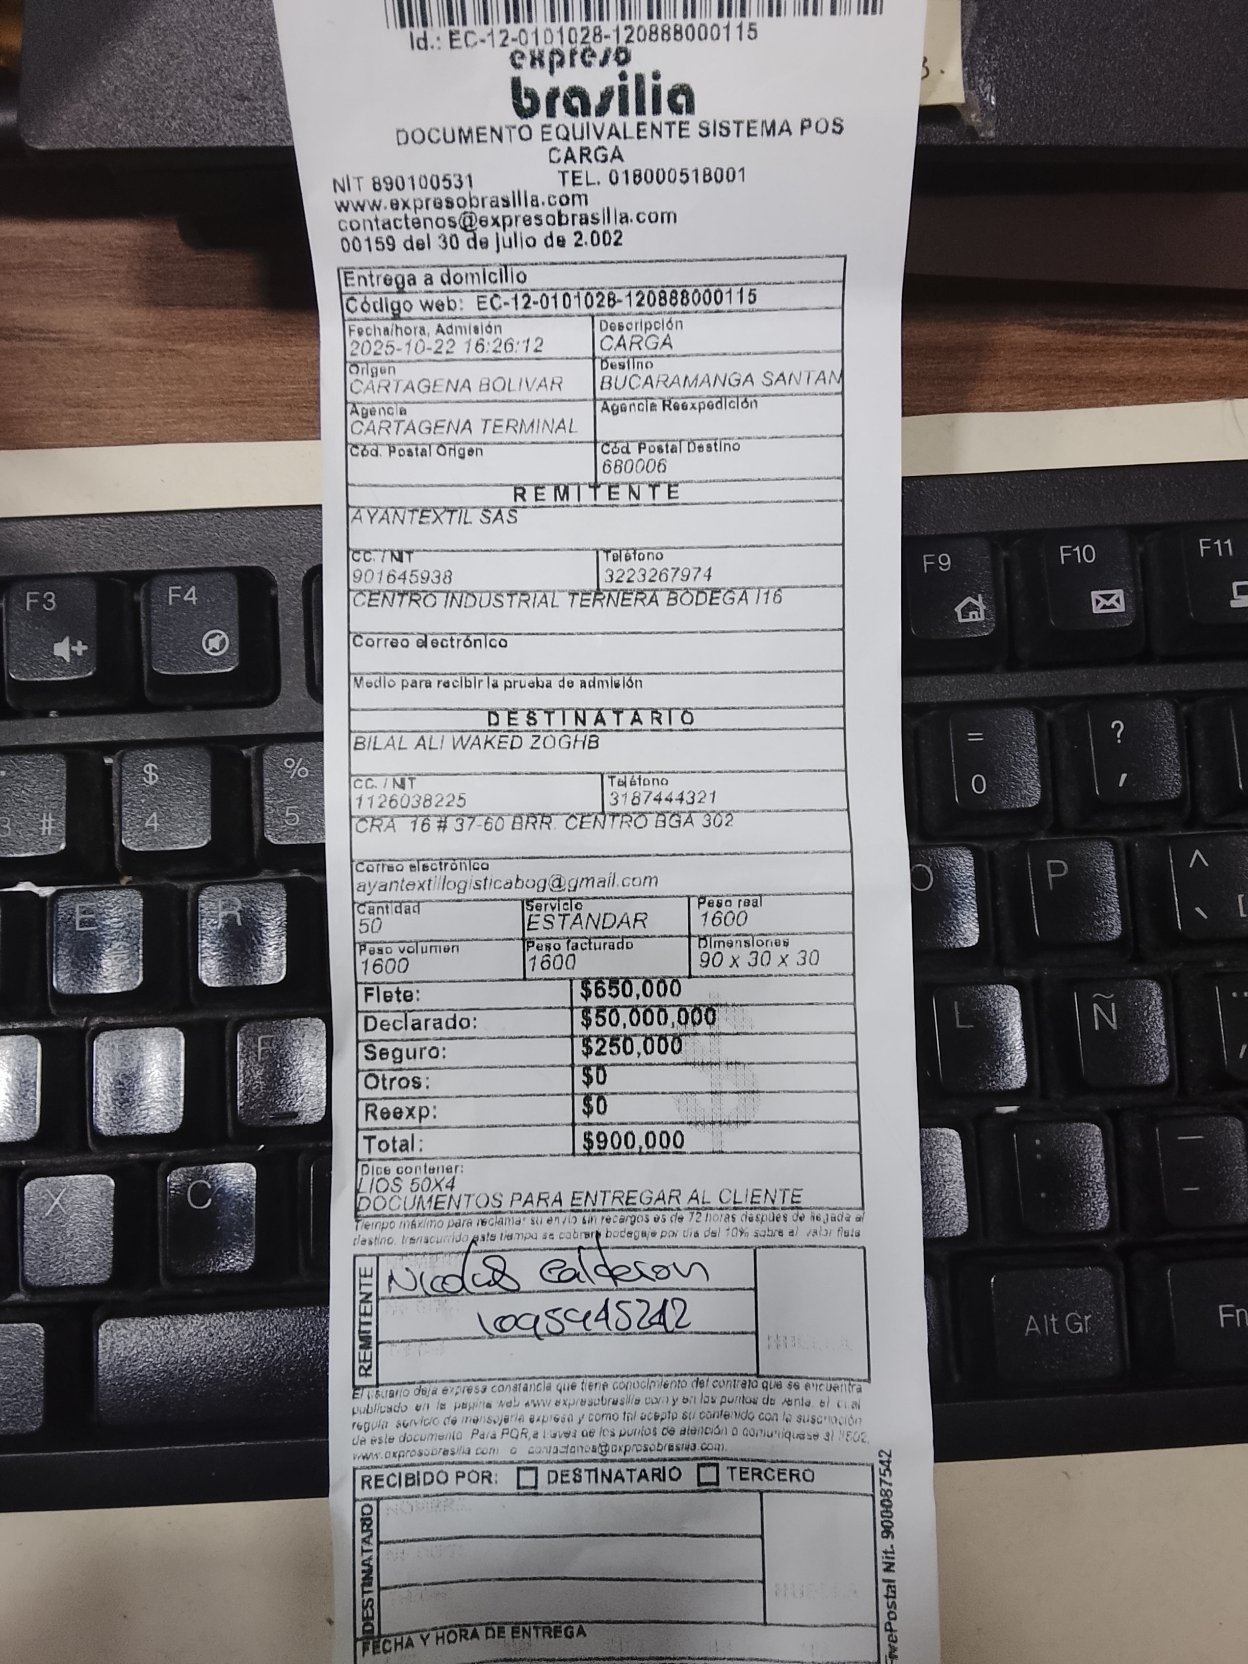 Id.: EC-12-0101028-120888000115
expreso
brasilia
DOCUMENTO EQUIVALENTE SISTEMA POS
CARGA
NIT 890100531 TEL. 018000518001
www.expresobrasilia.com
contactenos@expresobrasilia.com
00159 del 30 de julio de 2.002
Entrega a domicilio
Código web: EC-12-0101028-120888000115
Fecha/hora, Admisión Descripción
2025-10-22 16:26:12 CARGA
Origen Destino
CARTAGENA BOLIVAR BUCARAMANGA SANTAN
Agencia Agencia Reexpedición
CARTAGENA TERMINAL
Cód. Postal Origen Cód. Postal Destino
680006
REMITENTE
AYANTEXTIL SAS
CC. / NIT Teléfono
901645938 3223267974
CENTRO INDUSTRIAL TERNERA BODEGA I16
Correo electrónico
Medio para recibir la prueba de admisión
DESTINATARIO
BILAL ALI WAKED ZOGHB
CC. / NIT Teléfono
1126038225 3187444321
CRA 16 # 37-60 BRR. CENTRO BGA 302
Correo electrónico
ayantextillogisticabog@gmail.com
Cantidad Servicio Peso real
50 ESTANDAR 1600
Peso volumen Peso facturado Dimensiones
1600 1600 90 x 30 x 30
Flete: $650,000
Declarado: $50,000,000
Seguro: $250,000
Otros: $0
Reexp: $0
Total: $900,000
Dice contener:
LIOS 50X4
DOCUMENTOS PARA ENTREGAR AL CLIENTE
Tiempo máximo para reclamar su envío sin recargos es de 72 horas después de llegada al
destino, transcurrido este tiempo se cobrará bodegaje por día del 10% sobre el valor flete
REMITENTE
Nicolas Calderon
1095945242
El usuario deja expresa constancia que tiene conocimiento del contrato que se encuentra
publicado en la pagina web www.expresobrasilia.com y en los puntos de venta, el cual
regula servicio de mensajería expresa y como tal acepto su contenido con la suscripción
de este documento. Para PQR, a traves de los puntos de atención o comuníquese al
www.expresobrasilia.com o contactenos@expresobrasilia.com.
RECIBIDO POR: DESTINATARIO TERCERO
DESTINATARIO
FECHA Y HORA DE ENTREGA
Postal Nit. 900087542
F3
F4
F9
F10
F11
# 3
$ 4
% 5
= 0
? ,
E
R
O
P
^
F
L
Ñ
X
C
: .
_ -
Alt Gr
Fn